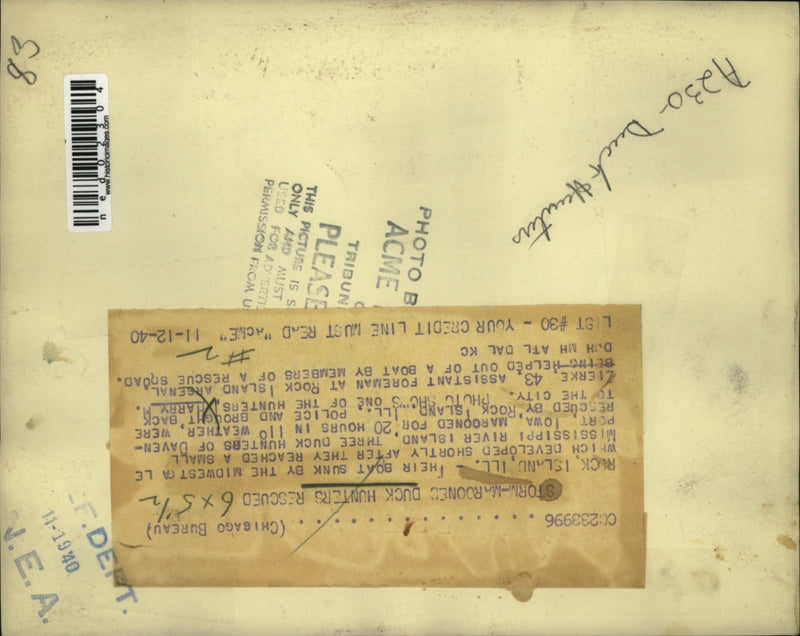 83
n e d 0 2 3 0 4
www.historicimages.com
A230- Duck Hunters
PHOTO B
ACME
TRIBUN
PLEASE
THIS PICTURE IS S
ONLY AND MUST
USED FOR ADVERTI
PERMISSION FROM
CC233996 . . . . . . . . . . . . . . . . (CHICAGO BUREAU)
STORM-MAROONED DUCK HUNTERS RESCUED 6 x 5 1/2
ROCK ISLAND, ILL. - THEIR BOAT SUNK BY THE MIDWEST GALE
WHICH DEVELOPED SHORTLY AFTER THEY REACHED A SMALL
MISSISSIPPI RIVER ISLAND, THREE DUCK HUNTERS OF DAVEN-
PORT, IOWA, MAROONED FOR 20 HOURS IN 110 WEATHER, WERE
RESCUED BY ROCK ISLAND, ILL., POLICE AND BROUGHT BACK
TO THE CITY. PHOTO SHOWS ONE OF THE HUNTERS, HARRY H.
ZIERKE, 43, ASSISTANT FOREMAN AT ROCK ISLAND ARSENAL
BEING HELPED OUT OF A BOAT BY MEMBERS OF A RESCUE SQUAD.
DJH MH ATL DAL KC
#2
LIST #30 - YOUR CREDIT LINE MUST READ "ACME" 11-12-40
F. DEPT.
11-1940
N.E.A.